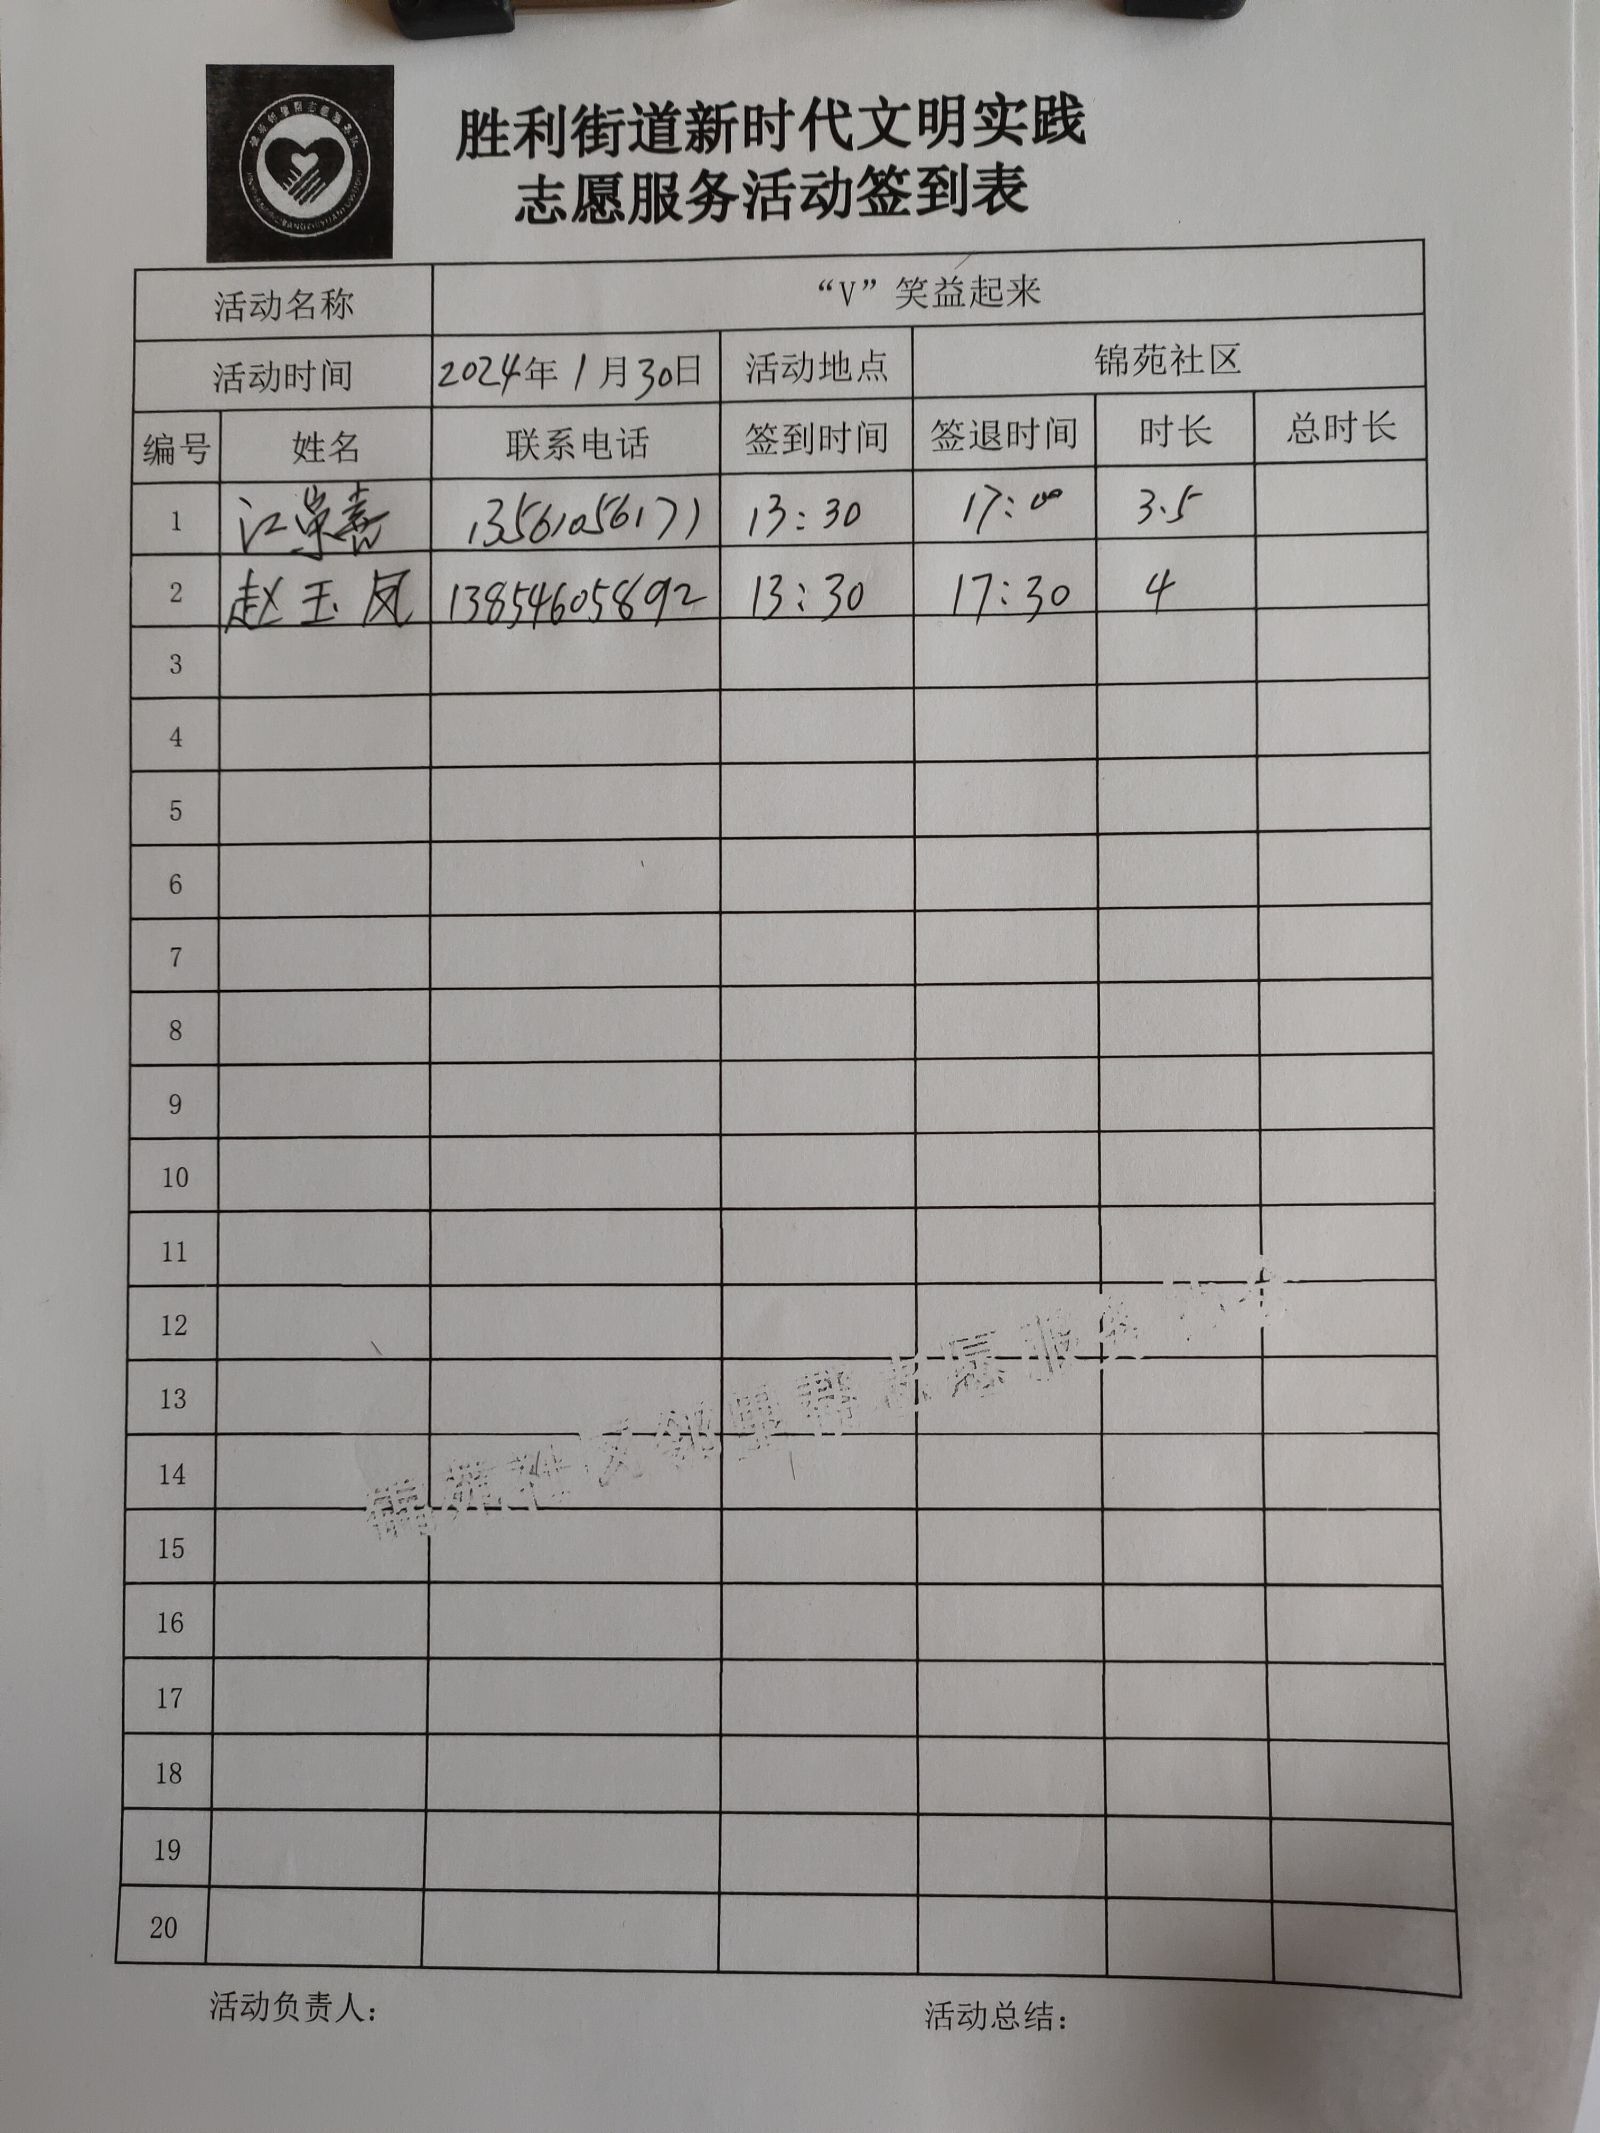 胜利街道新时代文明实践
志愿服务活动签到表
活动名称 “V”笑益起来
活动时间 2024年1月30日 活动地点 锦苑社区
编号 姓名 联系电话 签到时间 签退时间 时长 总时长
1 江 喜 13561056171 13:30 17:00 3.5
2 赵玉凤 13854605892 13:30 17:30 4
3
4
5
6
7
8
9
10
11
12
13
14
15
16
17
18
19
20
锦苑社区邻里帮志愿服务
活动负责人: 活动总结: